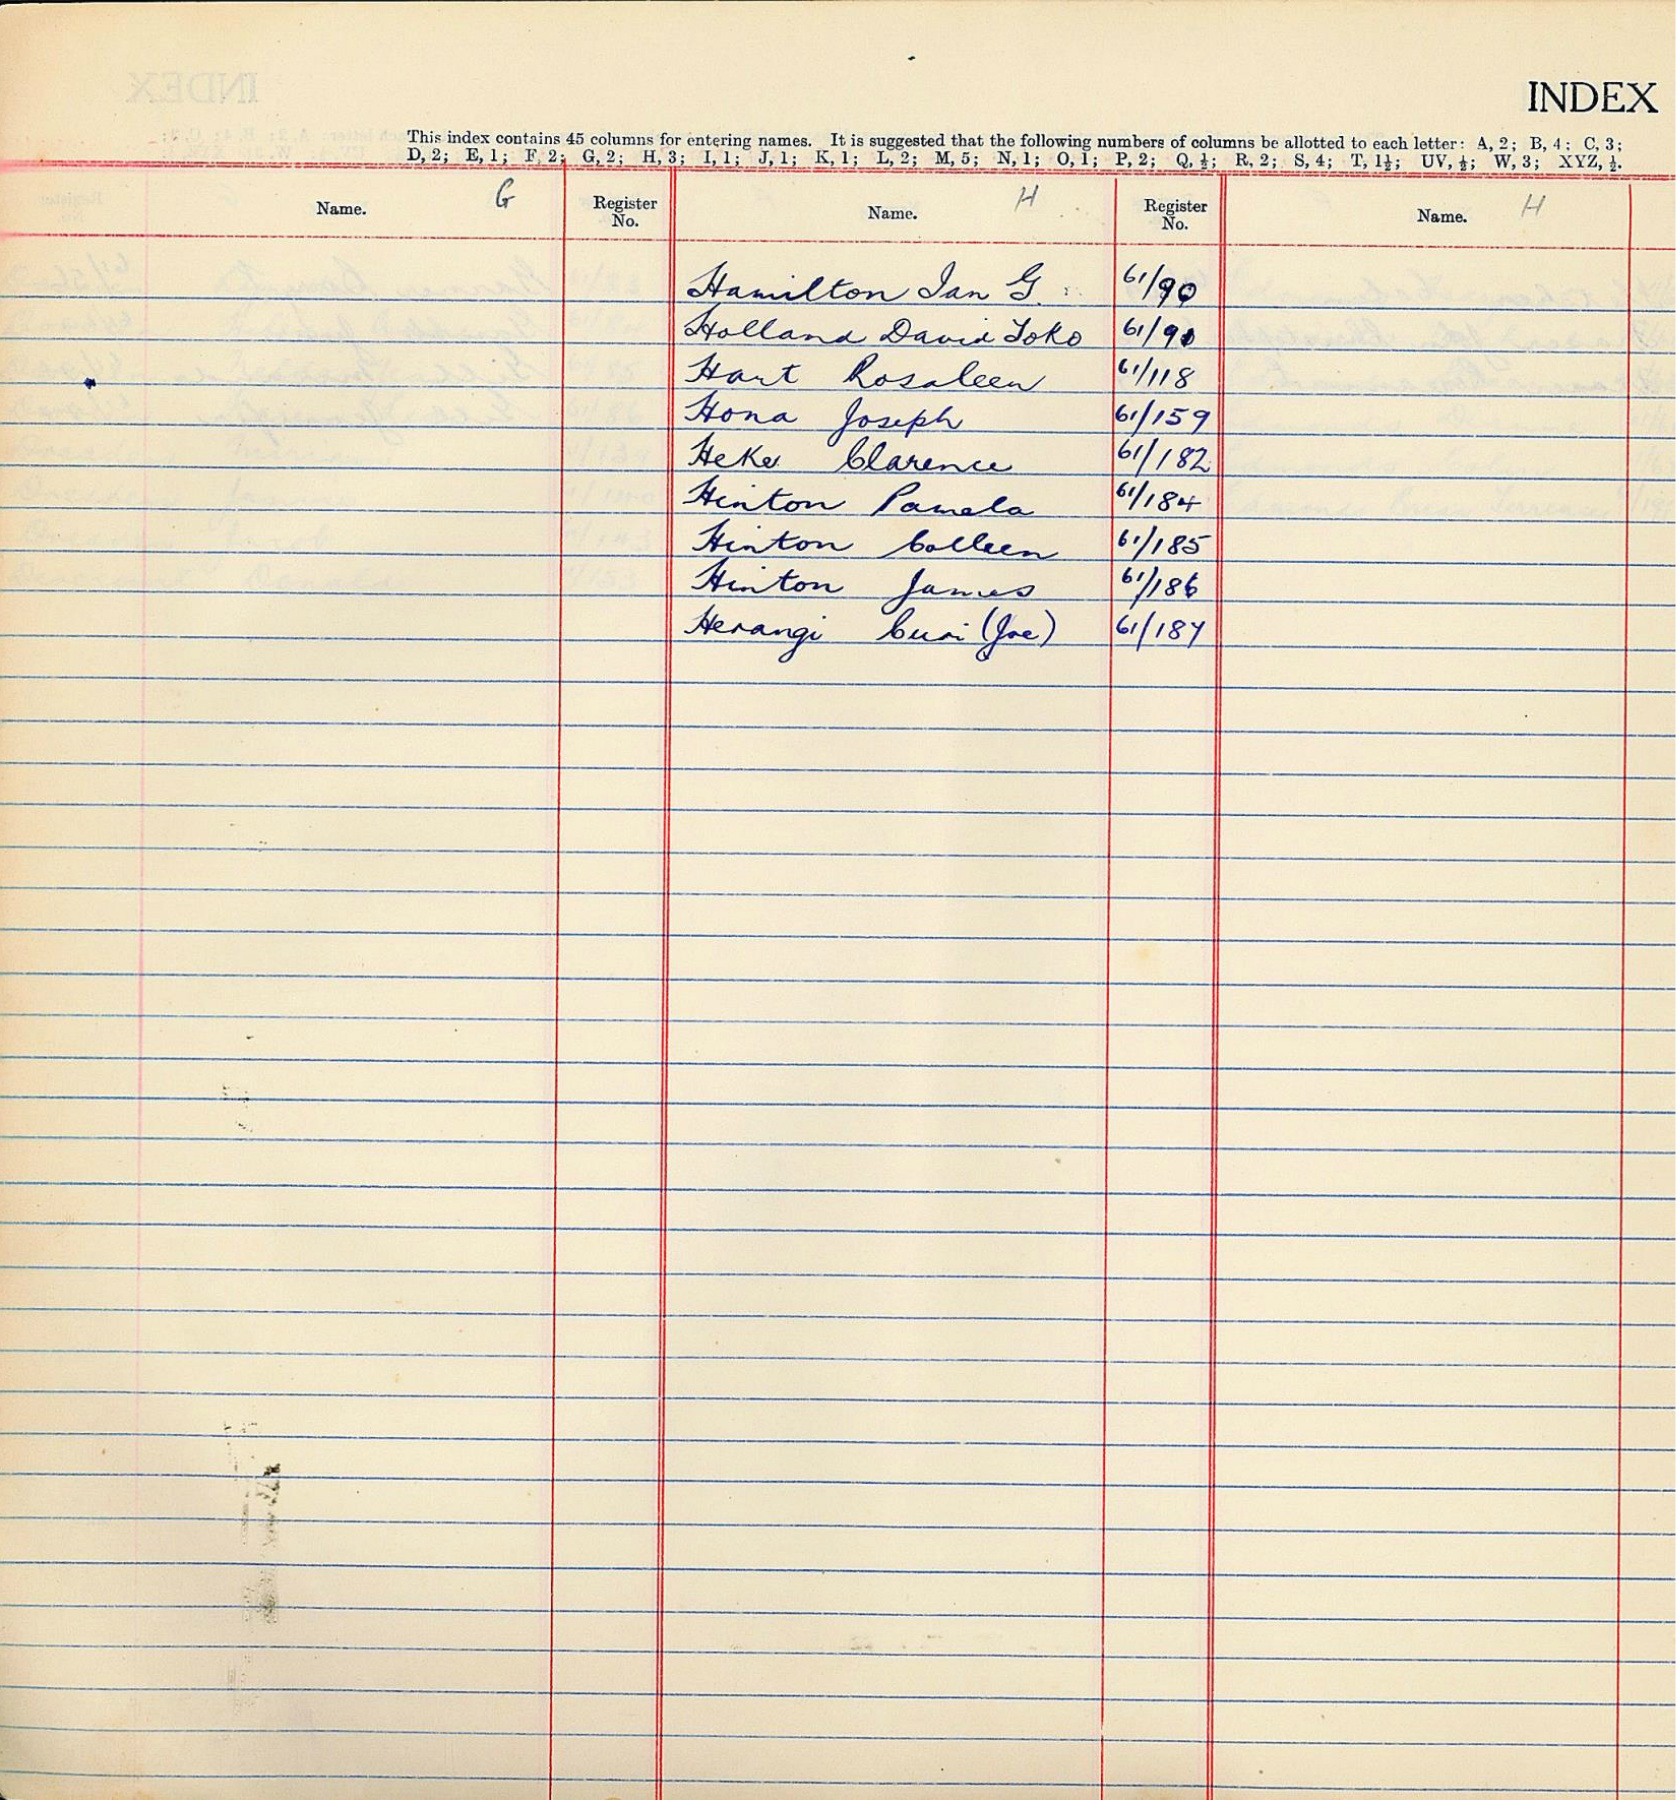 INDEX
This index contains 45 columns for entering names. It is suggested that the following numbers of columns be allotted to each letter: A, 2; B, 4; C, 3;
D, 2; E, 1; F, 2; G, 2; H, 3; I, 1; J, 1; K, 1; L, 2; M, 5; N, 1; O, 1; P, 2; Q, ½; R, 2; S, 4; T, 1½; UV, ½; W, 3; XYZ, ½.
Name. G Register No. Name. H Register No. Name. H
Hamilton Ian G. 61/90
Holland David Toko 61/91
Hart Rosaleen 61/118
Hona Joseph 61/159
Heke Clarence 61/182
Hinton Pamela 61/184
Hinton Colleen 61/185
Hinton James 61/186
Herangi (Joe) 61/187